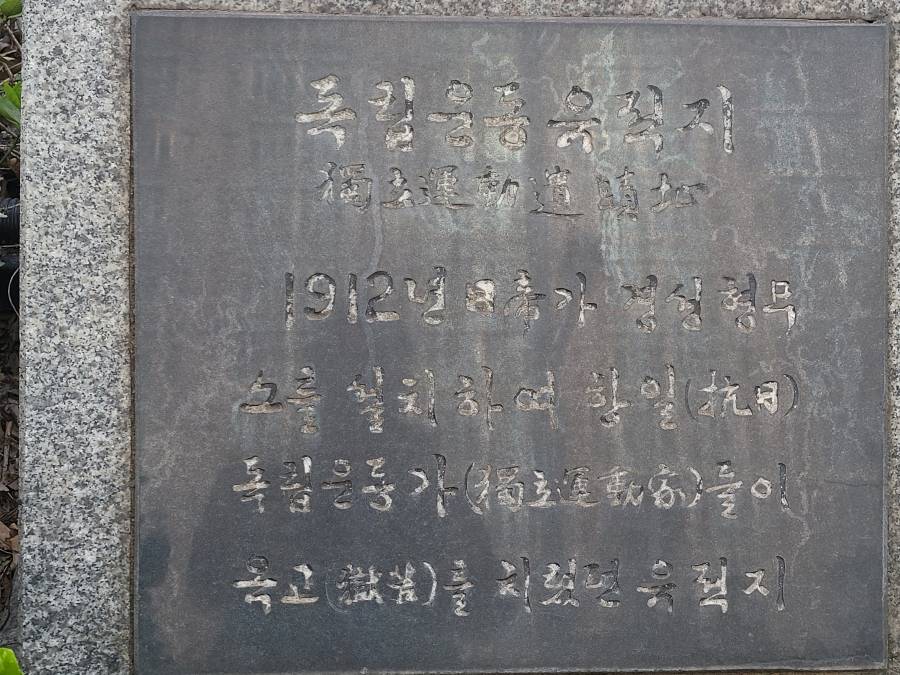 독립운동유적지
獨立運動遺蹟址
1912년 日帝가 경성형무
소를 설치하여 항일(抗日)
독립운동가(獨立運動家)들이
옥고(獄苦)를 치렀던 유적지